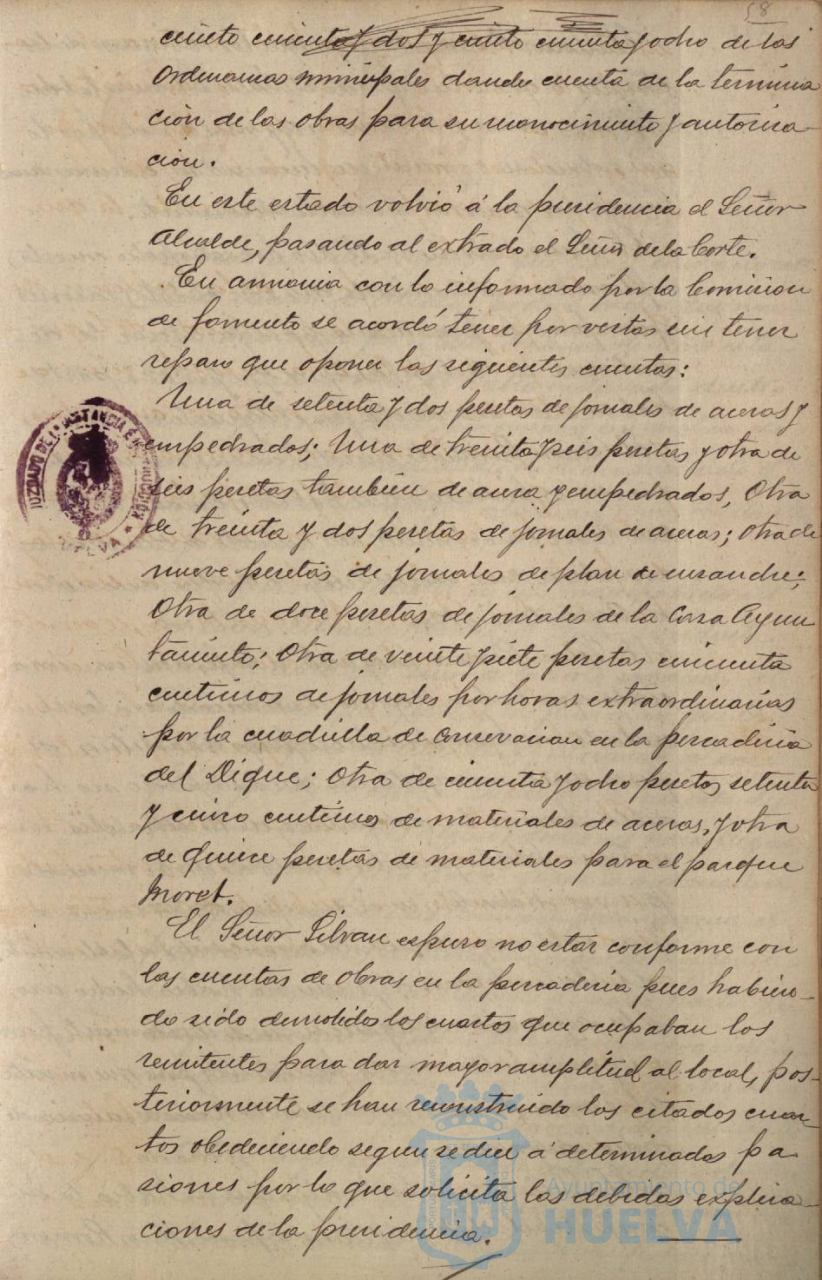 58
ciento cincuenta y dos y ciento cincuenta y ocho de las
Ordenanzas municipales dando cuenta de la termina
ción de las obras para su reconocimiento y autoriza-
ción.
En este estado volvió á la presidencia el Señor
Alcalde, pasando al extrado el Señor de la Corte.
En armonia con lo informado por la Comision
de fomento se acordó tener por vistas sin tener
reparo que oponer las siguientes cuentas:
Una de setenta y dos pesetas de jornales de aceras y
empedrados; Una de treinta y seis pesetas y otra de
seis pesetas tambien de acera y empedrados, Otra
de treinta y dos pesetas de jornales de aceras; otra de
nueve pesetas de jornales de plan de ensanche;
Otra de doce pesetas de jornales de la Casa Ayun
tamiento; Otra de veinte y siete pesetas cincuenta
centimos de jornales por horas extraordinarias
por la cuadrilla de conservacion en la pescaderia
del Dique; Otra de cincuenta y ocho pesetas setenta
y cinco centimos de materiales de aceras, y otra
de quince pesetas de materiales para el parque
Moret.
El Señor Silvan espuso no estar conforme con
las cuentas de obras en la pescaderia pues habien-
do sido demolidos los cuartos que ocupaban los
remitentes para dar mayor amplitud al local, pos-
teriormente se han reconstruido los citados cuar-
tos obedeciendo segun se dice á determinadas pa
siones por lo que solicita las debidas explica-
ciones de la presidencia.
JUZGADO DE 1ª INSTANCIA É
HUELVA
Ayuntamiento de
HUELVA